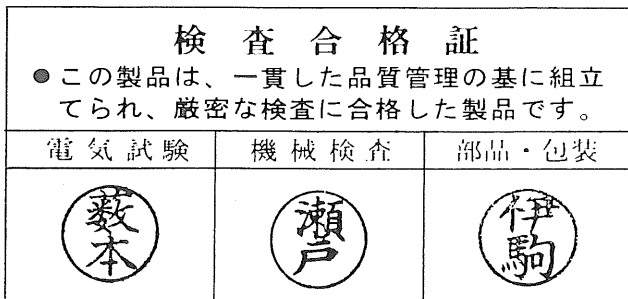 検査合格証
●この製品は、一貫した品質管理の基に組立
てられ、厳密な検査に合格した製品です。
電気試験 機械検査 部品・包装
薮本 瀬戸 伊駒